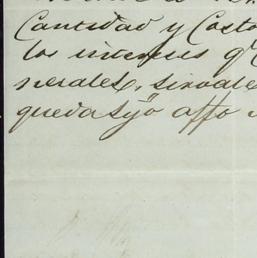 Cantidad y Costo
los intereses q
nerales, sirvale
queda sy̋o affo